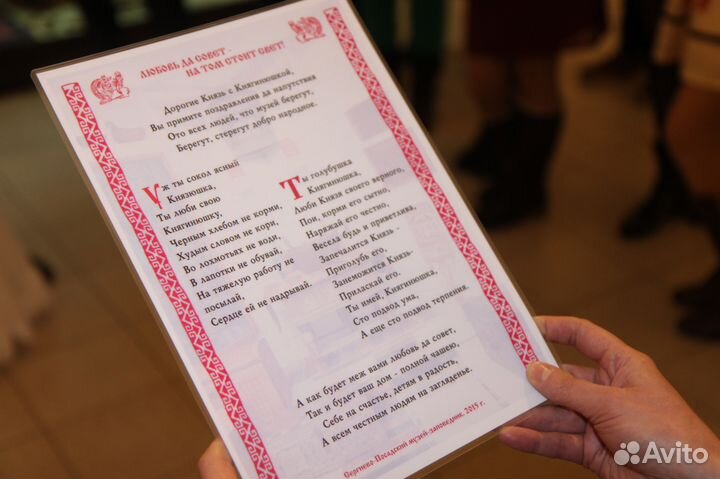 Любовь да совет -
на том стоит свет!
Дорогие Князь с Княгинюшкой,
Вы примите поздравления да напутствия
Ото всех людей, что музей берегут,
Берегут, стерегут добро народное.
Уж ты сокол ясный
Князюшка,
Ты люби свою
Княгинюшку,
Черным хлебом не корми,
Худым словом не кори,
Во лохмотьях не води,
В лапотки не обувай,
На тяжелую работу не
посылай,
Сердце ей не надрывай.
Ты голубушка
Княгинюшка,
Люби Князя своего верного,
Пои, корми его сытно,
Наряжай его честно,
Весела будь и приветлива,
Запечалится Князь -
Приголубь его,
Занеможится Князь-
Приласкай его,
Ты имей, Княгинюшка,
Сто подвод ума,
А еще сто подвод терпения.
А как будет меж вами любовь да совет,
Так и будет ваш дом - полной чашею,
Себе на счастье, детям в радость,
А всем честным людям на загляденье.
Сергиево-Посадский музей-заповедник. 2015 г.
Avito